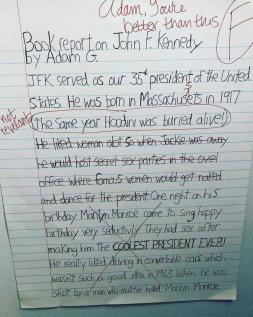 Adam, you're
better than this
F
Book report on John F. Kennedy
by Adam G.
JFK served as our 35th president of the United
States. He was born in Massachusets in 1917
not
relevant
(the same year Hoodini was buried alive!)
He liked woman alot so when Jackie was away
he would host secret sex parties in the ovel
office where famous women would get naked
and dance for the president. One night on his
birthday Marilyn Monroe came to sing happy
birthday very seductivly. They had sex after
making him the COOLEST PRESIDENT EVER!
He really liked driving in convertable cars which
wasn't such a good idea in 1963 when he was
shot by a man who mustve hated Marilyn Monroe